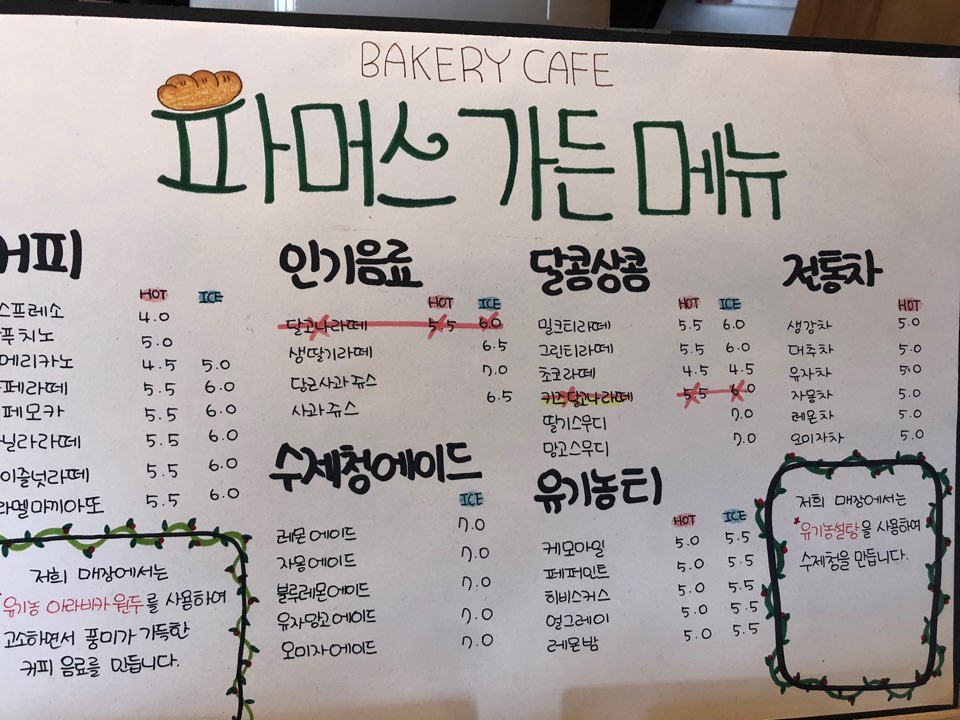 BAKERY CAFE
파머스 가든 메뉴
커피
HOT ICE
스프레소 4.0
푸치노 5.0
메리카노 4.5 5.0
페라떼 5.5 6.0
페모카 5.5 6.0
닐라라떼 5.5 6.0
이즐넛라떼 5.5 6.0
라멜마끼아또 5.5 6.0
저희 매장에서는
유기농 아라비카 원두를 사용하여
고소하면서 풍미가 가득한
커피 음료를 만듭니다.
인기음료
HOT ICE
달고나라떼 5.5 6.0
생딸기라떼 6.5
당근사과쥬스 7.0
사과쥬스 6.5
수제청에이드
ICE
레몬에이드 7.0
자몽에이드 7.0
블루레몬에이드 7.0
유자망고에이드 7.0
오미자에이드 7.0
달콤상콤
HOT ICE
밀크티라떼 5.5 6.0
그린티라떼 5.5 6.0
초코라떼 4.5 4.5
키즈달고나라떼 5.5 6.0
딸기스무디 7.0
망고스무디 7.0
유기농티
HOT ICE
케모마일 5.0 5.5
페퍼민트 5.0 5.5
히비스커스 5.0 5.5
얼그레이 5.0 5.5
레몬밤 5.0 5.5
전통차
HOT
생강차 5.0
대추차 5.0
유자차 5.0
자몽차 5.0
레몬차 5.0
오미자차 5.0
저희 매장에서는
*유기농설탕을 사용하여
수제청을 만듭니다.